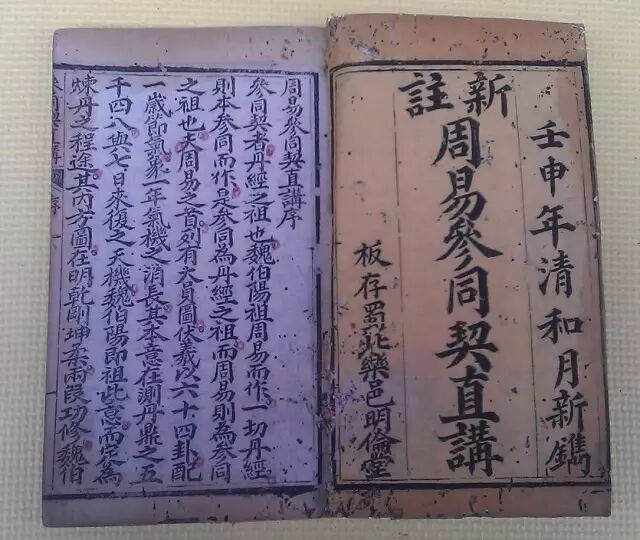 壬申年清和月新鐫
新註
周易參同契直講
板存蜀北樂邑明倫堂
周易參同契直講序
參同契者丹經之祖也魏伯陽祖周易而作一切丹經
則本參同而作是參同為丹經之祖而周易則為參同
之祖也夫周易之首列有大員圖伏羲以六十四卦配
一歲節氣象一年氣機之消長其本意在測丹鼎之五
千四八與七日來復之天機魏伯陽即祖此意而定為
煉丹之程途其內方圖在明乾剛坤柔兩段功修魏伯